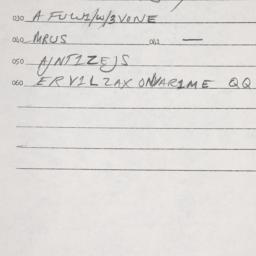 030 A FUW1/W/3VONE
040 MRUS 041 —
050 AJNT1ZEJS
060 ERVILZAX ONVAR1ME QQ